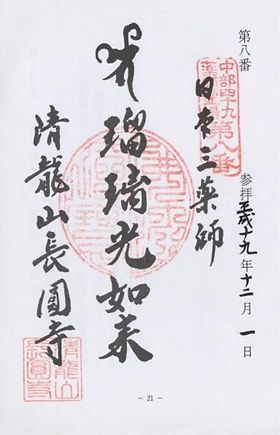 第八番
参拝平成十九年十二月一日
中部四十九
薬師霊場
第八番
日本三薬師
瑠璃光如来
清龍山長圓寺
清龍山
長圓寺
- 21 -